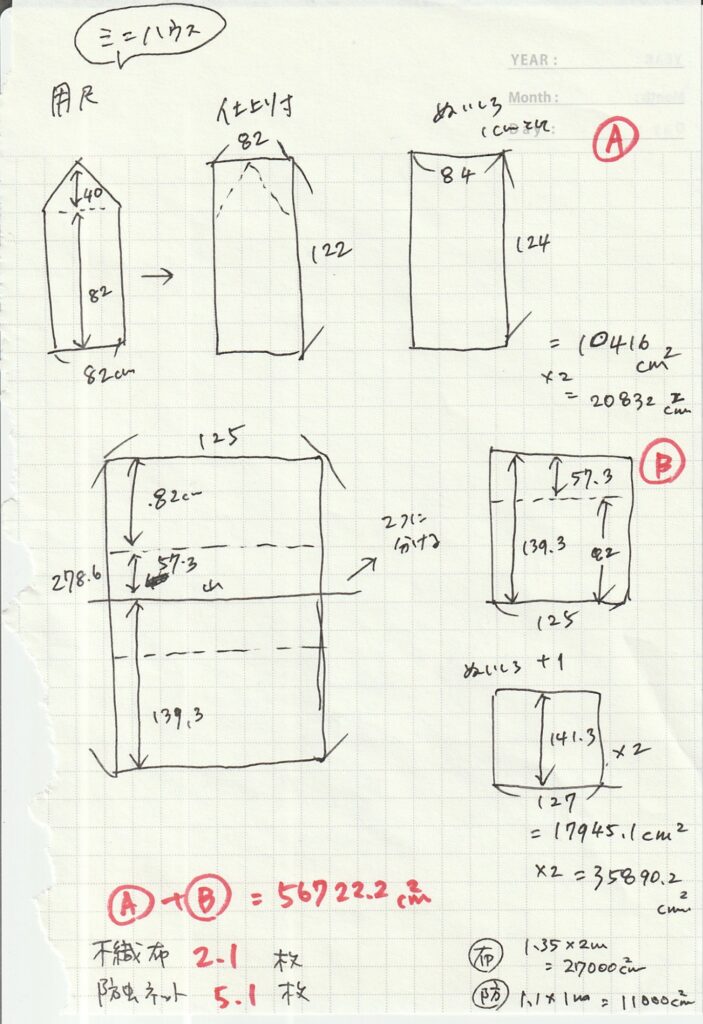 ミニハウス
YEAR :
Month :
Day :
用尺
仕上り寸
ぬいしろ
1cm
A
40
82
82cm
82
122
84
124
= 10416 cm²
×2
= 20832 cm²
125
.82cm
57.3
278.6
山
139.3
2つに
分ける
B
57.3
139.3
82
125
ぬいしろ +1
141.3
×2
127
= 17945.1cm²
×2 = 35890.2 cm²
A + B = 56722.2 cm²
不織布 2.1 枚
防虫ネット 5.1 枚
布 1.35×2m
= 27000cm²
防 1.1×1m = 11000cm²